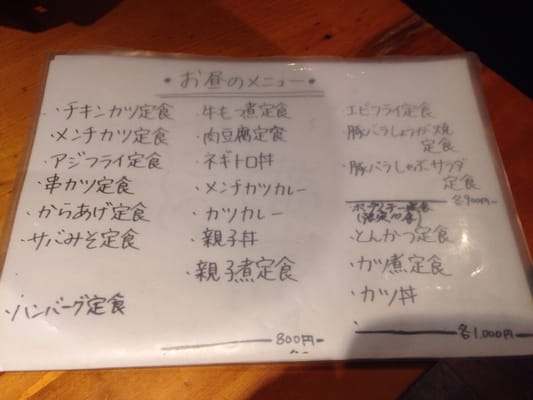 ・お昼のメニュー・
・チキンカツ定食
・メンチカツ定食
・アジフライ定食
・串カツ定食
・からあげ定食
・サバみそ定食
・ハンバーグ定食
・牛もつ煮定食
・肉豆腐定食
・ネギトロ丼
・メンチカツカレー
・カツカレー
・親子丼
・親子煮定食
800円
エビフライ定食
・豚バラしょうが焼
定食
・豚バラしゃぶサラダ
定食
各900円
・とんかつ定食
・カツ煮定食
・カツ丼
各1,000円